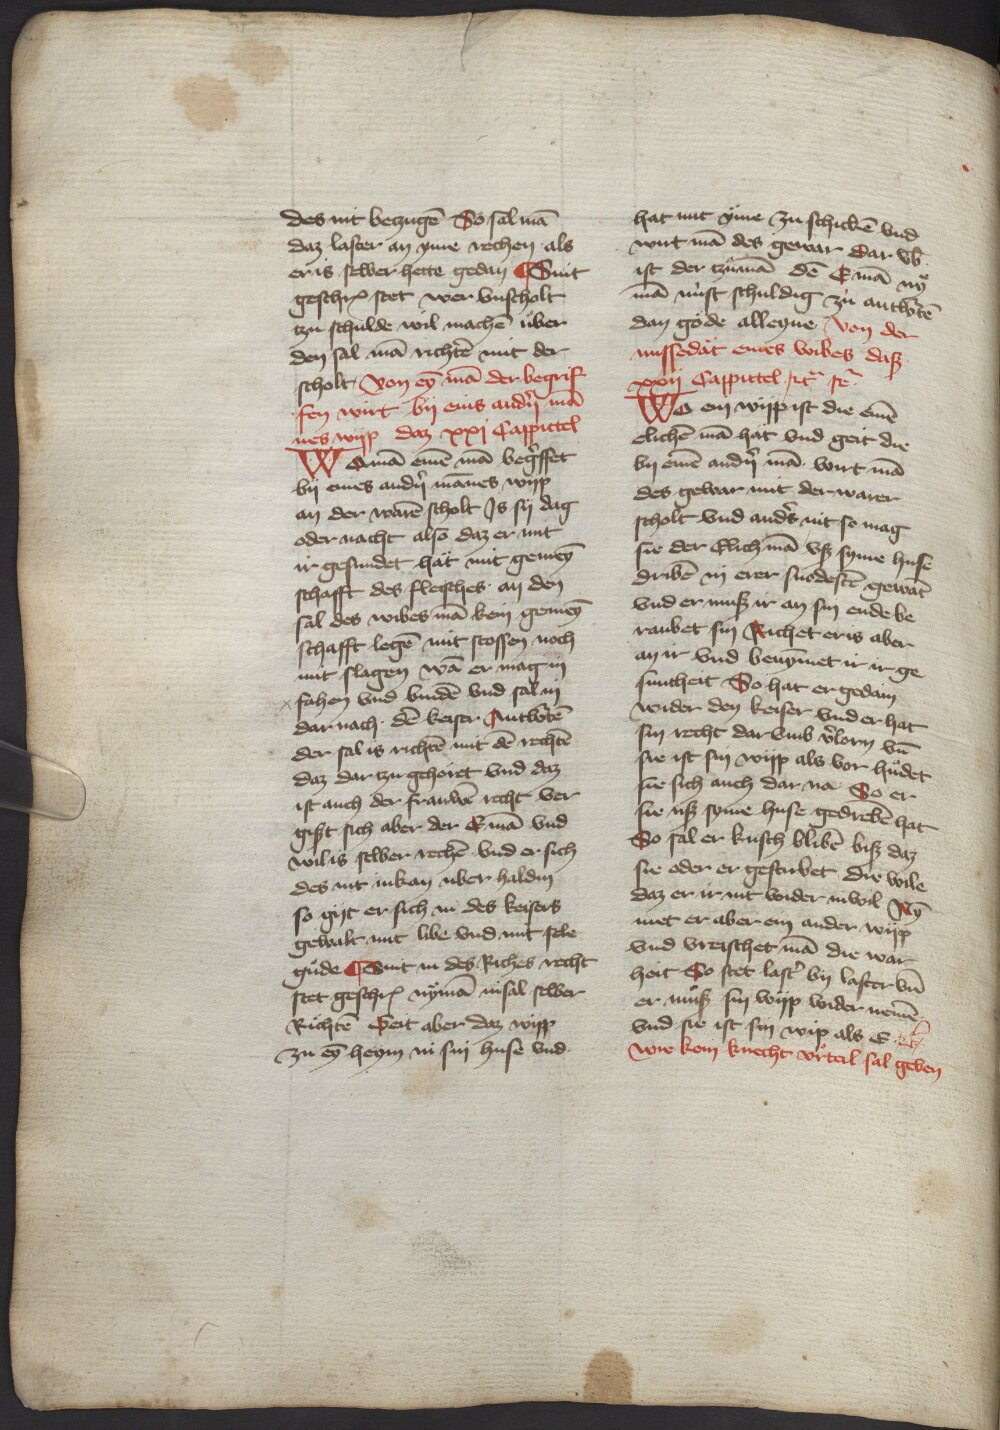 des nit betzugē So sal mā
daz laster an yme rechen als
er is selber hette gedan ¶ Sint
geschr̄ stet wer vnscholt
tzu schulde wil machē uͤber
den sal mā richtē mit der
scholt Von eỹ mā der begrif
fen wirt bij eins andn̄ mā
nes wijp daz xxj Cappittel
Wa mā einē mā begͥffet
bij eines andn̄ mānes wijp
an der warē scholt Js sij dag
oder nacht also daz er mit
ir gesundet hat mit gemeȳ
schafft des fleisches an den
sal des wibes mā kein gemeȳ
schafft legē mit stossen noch
mit slagen wā er mag in
fahen vnd bindē vnd sal in
dar nach dē keiser Antwͦtē
der sal is richtē mit dē rechtē
daz dar tzu gehoret vnd daz
ist auch der frauwē recht ver
gist sich aber der Emā vnd
wil is selber rechē vnd er sich
des nit inkan uber haldin
so gijt er sich in des keisers
gewalt mit libe vnd mit sele
guͦde ¶ Sint in des Riches recht
stet geschr̄ nÿmā insal selber
Richtē Geit aber daz wijp
zu eỹ heym in sin huse vnd
hat mit yme zu schickē vnd
wirt mā des gewar Dar vb̄
ist der dē Emā
mā nust schuldig zu antwͦtē
dan gode alleyne Von der
missedat eines wibes daß
xxij Cappittel
Wo ein wijp ist die einē
elichē mā hat vnd geit die
bij einē andn̄ mā wirt mā
des gewar mit der warer
scholt vnd anders nit so mag
sie der Elich mā vß syme huse
dribē in erer snodestē gewāt
vnd er muß ir an sin ende be
raubet sin Richet er is aber
an ir vnd benỹmet ir ir ge
suntheit So hat er gedain
wider den keiser vnd er hat
sin recht dar vmb v̄lorn vn̄
sie ist sin wijp als vor huͤdet
sie sich auch dar na So er
sie uß syme huse gedrebē hat
So sal er kusch blibē biß daz
sie oder er gestirbet die wile
daz er ir nit wider inwil Nỹ
met er aber ein ander wijp
vnd vreischet mā die war
heit So stet last̄ bij laster vn̄
er muß sin wijp wider nemē
vnd sie ist sin wip als E
wie kein knecht urteil sal geben